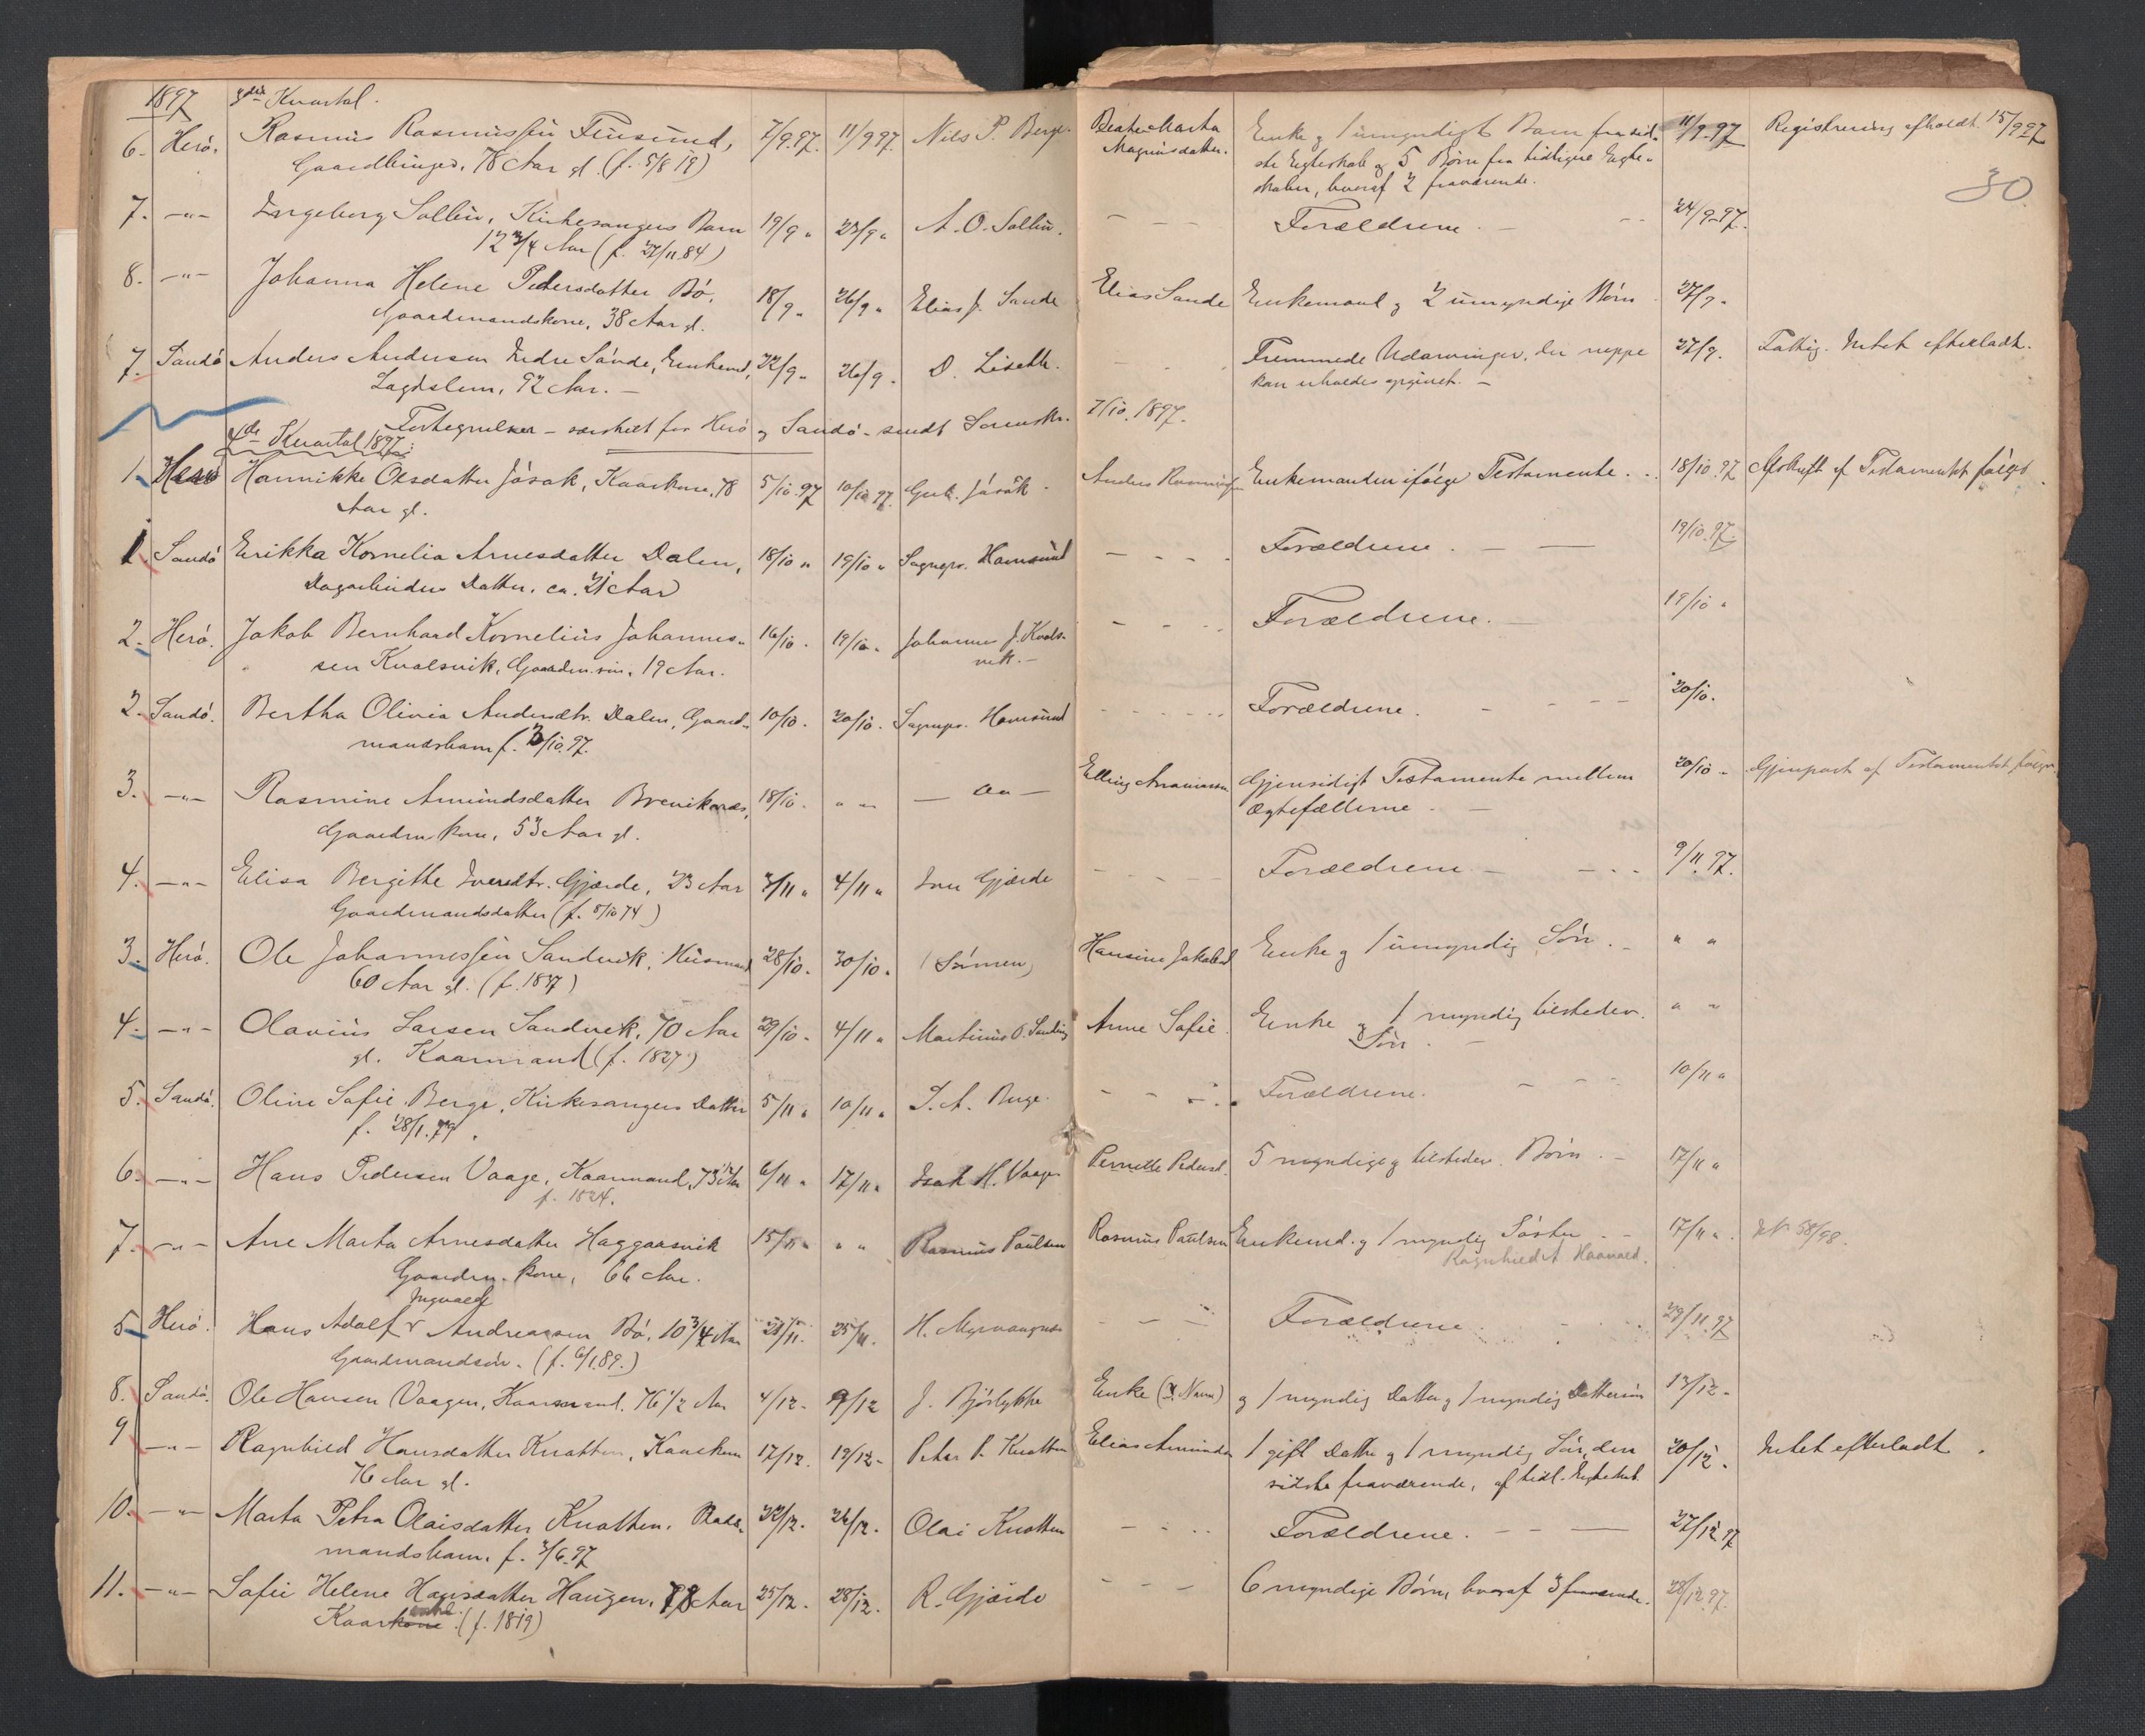 1897 3die Kvartal.
6. Herö. Rasmus Rasmussen 7/9.97. 11/9 97. Nils P. Berge Beate Marta Enke og 1 umyndigt Barn fra sid- 11/9.97 Registrering afholdt 15/9 97
Gaardbruger, 78 Aar gl. (f. 5/8 19) Magnusdatter. ste Egteskab og 5 Børn fra tidligere Egte-
skaber, hvoraf 2 fraværende. 30
7. -"- Ingeborg Sollin, Kirkesangers Barn 19/9 " 23/9 " A. O. Sollin. - - - Forældrene. - - - 24/9.97.
12 3/4 Aar (f. 22/11.84)
8. -"- Johanna Helene Pedersdatter Bö, 18/9 " 26/9 " Elias J. Sande Elias Sande Enkemand og 2 umyndige Børn 27/9 "
Gaardmandskone, 38 Aar gl.
7. Sandö Anders Andersen Indre Sande, Enkemd, 22/9 " 26/9 . D. Liseth. - - Fremmede Udarvinger, der neppe 27/9. Fattig. Intet efterladt.
Lagdslem, 92 Aar. - kan erholdes opgivet. -
Fortegnelser - særskilt for Herö og Sandö - sendt Sorenskr. 7/10.1897.
4de Kvartal 1897:
1. Herö Hannikke Olsdatter Jösok, Kaarkone, 78 5/10.97 10/10 97. Gut. Jösök . Anders Rasmussen Enkemanden ifølge Testamente. . . 18/10.97 Afskrift af Testamentet følger.
Aar gl.
1. Sandö Erikka Kornelia Arnesdatter Dalen, 18/10 " 19/10 " Sognepr. Havnsund - - - Forældrene . - — 19/10.97.
Dagarbeiders Datter, ca. 21 Aar
2. Herö. Jakob Bernhard Kornelius Johannes- 16/10 . 19/10 . Johannes J. Kvals- - - - Forældrene. - 19/10 "
sen Kvalsvik, Gaardm.søn, 19 Aar. vik. -
2. Sandö. Bertha Olivia Andersdtr. Dalen, Gaard- 10/10 . 20/10 . Sognepr. Havnsund - - - Forældrene. - - - 20/10.
mandsbarn f. 3/10.97.
3. -"- Rasmine Amundsdatter Breviknes, 18/10 . " " — do — Elling Gjensidigt Testamente mellem 20/10 - Gjenpart af Testamentet følger
Gaardm. kone, 53 Aar gl. Ægtefællerne. -
4. -"- Elisa Bergitte Iversdtr. Gjærde, 23 Aar 3/11 " 4/11 " Iver Gjærde - - - Forældrene - - - 9/11.97.
Gaardmandsdatter (f. 5/10 74)
3. Herö. Ole Johannessen Sandvik, Husmand 28/10 . 30/10 . (Sönnen) Hansine Jakobsd Enke og 1 umyndig Sön. - " "
60 Aar gl. (f. 1837)
4. -"- Olavius Larsen Sandvik, 70 Aar 29/10 . 4/11 " Martinus O. Sandvig Anne Sofie. Enke og 1 myndig tilstedev. " "
gl. Kaarmand (f. 1827) Sön. -
5. Sandö. Oline Sofie Berge, Kirkesangers Datter 5/11 " 10/11 " S. A. Berge. - - - Forældrene. - - - 10/11 "
f. 28/1.79.
6. -"- Hans Pedersen Vaage, Kaarmand, 73 Aar 6/11 " 17/11 " Isak H. Vaagen Pernille Pedersd. 5 myndige og tilstedev. Børn. - 17/11 "
f. 1824.
7. -"- Ane Marta Arnesdatter Haggaasvik 15/11 " " " Rasmus Paulsen Rasmus Paulsen Enkemd. og 1 myndig Söster. - - 17/11 ". 58/98.
Gaardm. kone, 66 Aar. Ragnhild Haavard.
Ingvald
5. Herö. Hans Adolf Andreassen Bö, 10 3/4 Aar 21/11. 25/11. H. Myrvaagnes - - - Forældrene - - - 29/11.97
Gaardmandssön. (f. 6/1.89.)
8. Sandö. Ole Hansen Vaagen, Kaarmand, 76 1/2 Aar 4/12 - 9/12 J. Bjørlykke Enke (? Navn) og 1 myndig Datter og 1 myndig Dattersön 13/12 -
9 -"- Ragnhild Hansdatter Knotten, Kaarkone 17/12. 19/12 - Peter P. Knotten Elias Amundsen 1 gift Datter og 1 myndig Sön, den 20/12 . Intet efterladt .
76 Aar gl. sidste fraværende, af tidl. Egteskab
10. -"- Marta Petra Olaisdatter Knotten, 22/12. 26/12. Olai Knotten - - - Forældrene. - - — 27/12 97
mandsbarn. f. 3/6.97
11. -"- Sofie Helene Hansdatter Haugen, 78 Aar 25/12. 28/12. R. Gjærde - - - 6 myndige Børn, hvoraf 3 fraværende. 28/12 97.
Kaarkone enke. (f. 1819)